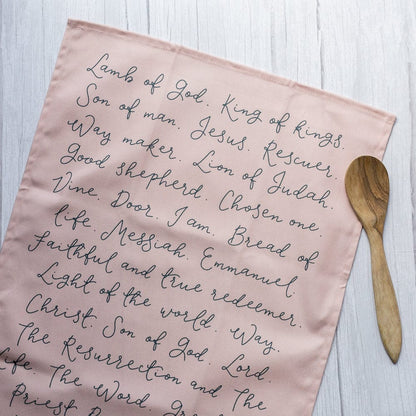 Lamb of God. King of kings.
Son of man. Jesus. Rescuer.
Way maker. Lion of Judah.
Good shepherd. Chosen one
Vine. Door. I am. Bread of
life. Messiah. Emmanuel.
Faithful and true redeemer.
Light of the world. Way.
Christ. Son of God. Lord.
The Resurrection and The
Life. The Word.
Priest